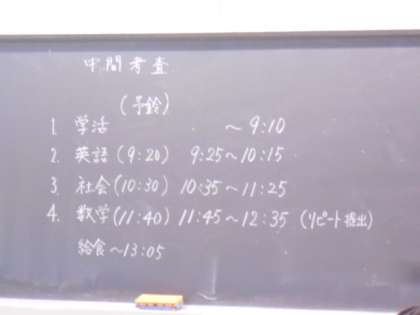 中間考査
(予鈴)
1. 学活 ～9:10
2. 英語(9:20) 9:25～10:15
3. 社会(10:30) 10:35～11:25
4. 数学(11:40) 11:45～12:35 (リピート提出)
給食～13:05